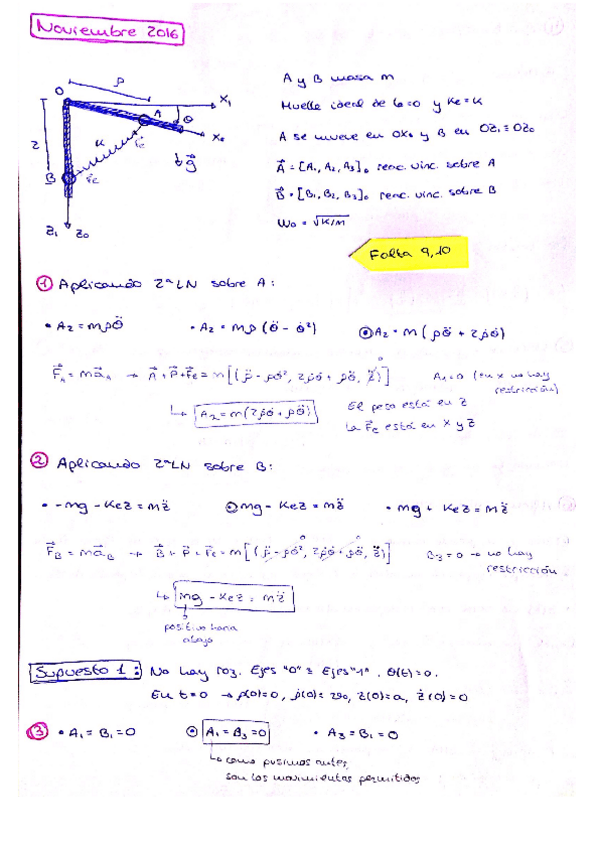 Noviembre 2016
A y B masa m
Muelle ideal de l₀=0 y Ke=K
A se mueve en OX₀ y B en OZ₁≡OZ₀
A⃗ = [A₁, A₂, A₃]₀ reac. vinc. sobre A
B⃗ = [B₁, B₂, B₃]₀ reac. vinc. sobre B
ω₀ = √K/M
Falta 9,10
O ρ X₁ A θ X₀ z K F⃗e g⃗ B F⃗e Z₁ Z₀
① Aplicando 2ªLN sobre A:
• A₂ = mρθ̈ • A₂ = mρ(θ̈ - θ̇²) ⊙ A₂ = m(ρθ̈ + 2ρ̇θ̇)
F⃗A = ma⃗A → A⃗ + P⃗ + F⃗e = m[(ρ̈ - ρθ̇², 2ρ̇θ̇ + ρθ̈, z̈)] 0 A₁=0 (en x no hay
restricción)
↳ A₂ = m(2ρ̇θ̇ + ρθ̈) El peso está en z
La F⃗e está en x y z
② Aplicando 2ªLN sobre B:
• -mg - Kez = mz̈ ⊙ mg - Kez = mz̈ • mg + Kez = mz̈
F⃗B = ma⃗B → B⃗ + P⃗ + F⃗e = m[(ρ̈ - ρθ̇², 2ρ̇θ̇ + ρθ̈, z̈)] 0 0 B₃=0 → no hay
restricción.
↳ mg - Kez = mz̈
positivo hacia
abajo
Supuesto 1: No hay roz. Ejes "0" ≡ Ejes "1". θ(t)=0.
En t=0 → ρ(0)=0, ρ̇(0)= 2v₀, z(0)=a, ż(0)=0
③ • A₁ = B₁ = 0 ⊙ A₁ = B₃ = 0 • A₃ = B₁ = 0
↳ como pusimos antes,
son los movimientos permitidos